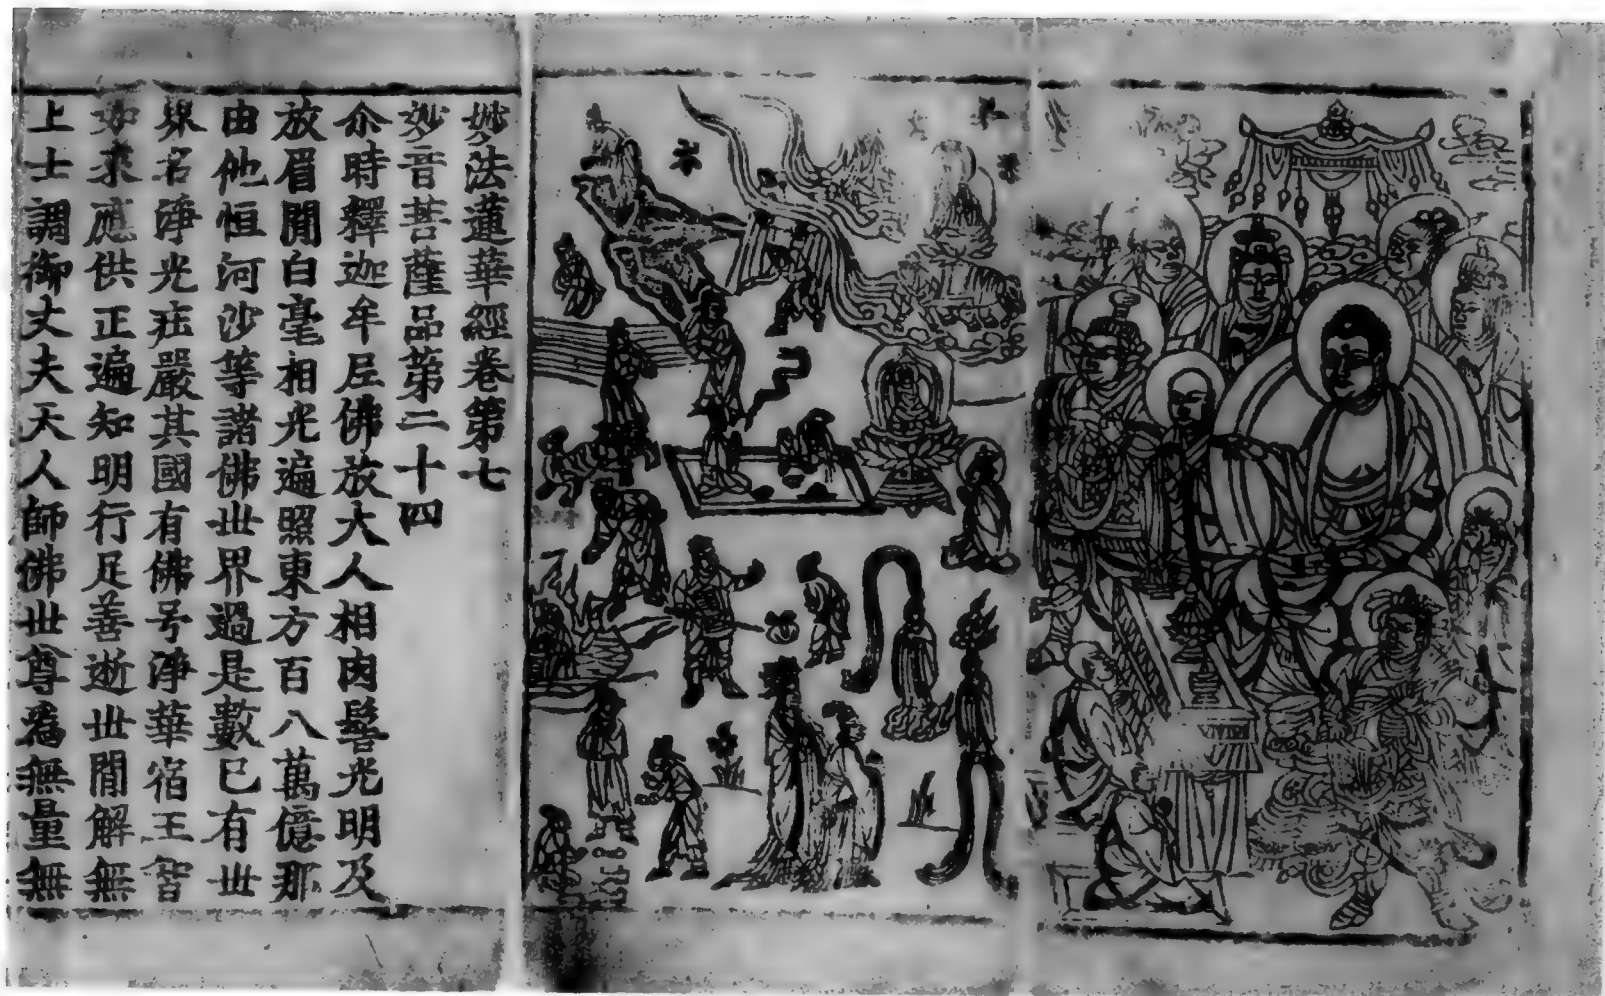 妙法蓮華經卷第七
妙音菩薩品第二十四
尒時釋迦牟尼佛放大人相肉髻光明及
放眉間白毫相光遍照東方百八萬億那
由他恒河沙等諸佛世界過是數已有世
界名淨光莊嚴其國有佛号淨華宿王智
如來應供正遍知明行足善逝世間解無
上士調御丈夫天人師佛世尊爲無量無